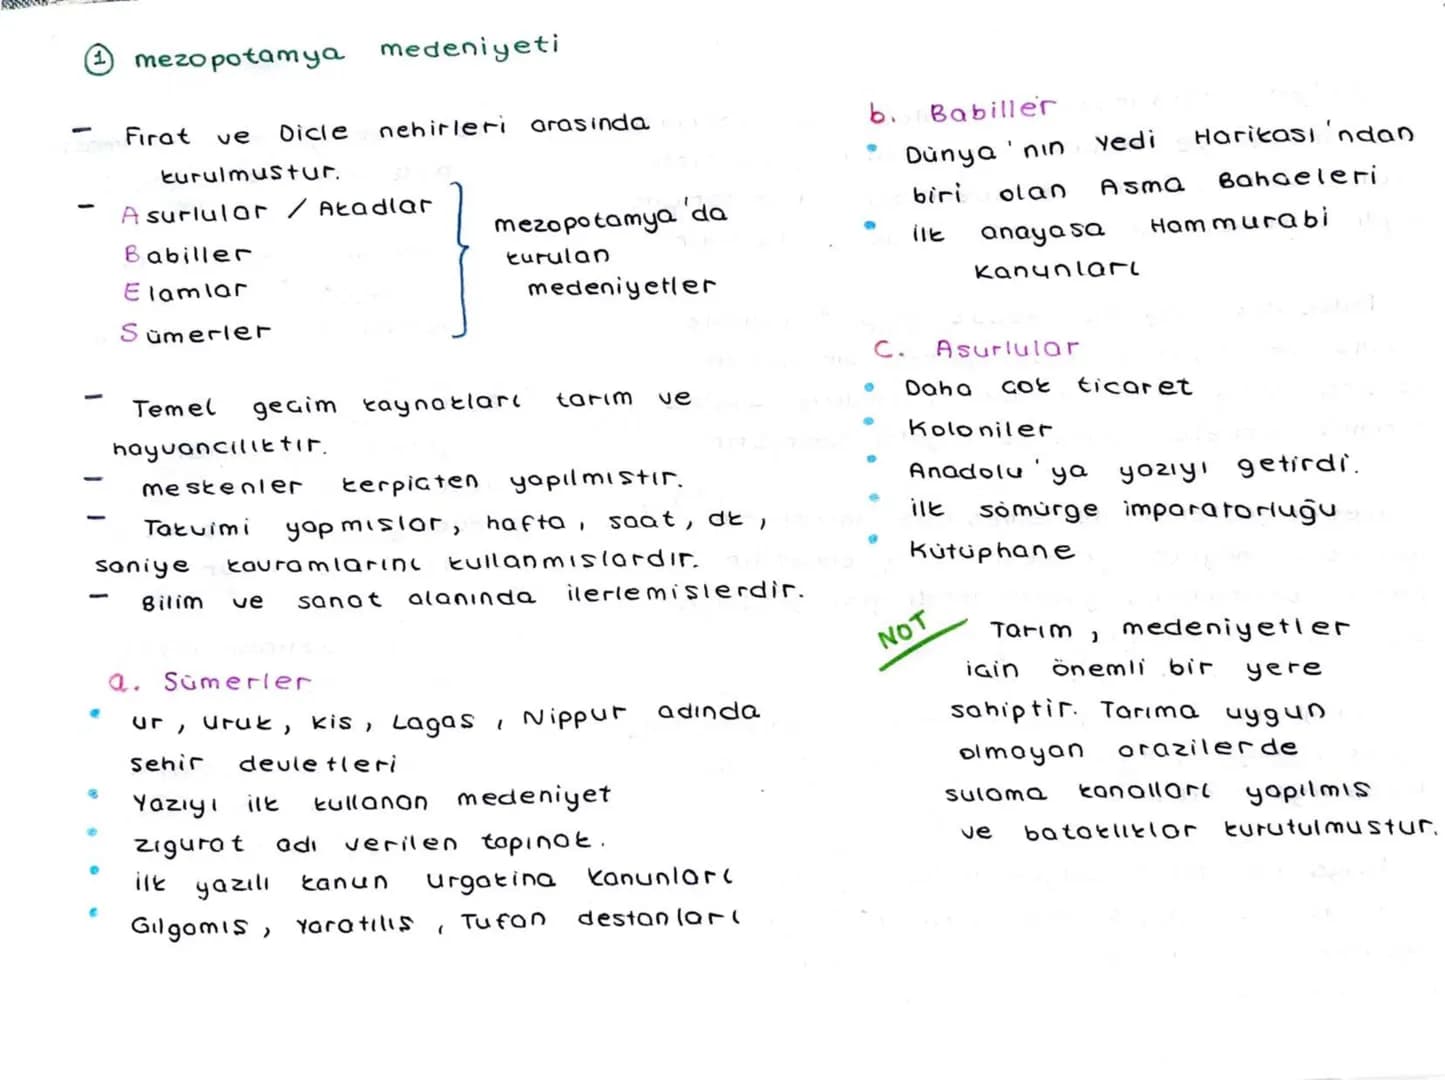 1 mezopotamya medeniyeti
- Fırat ve Dicle nehirleri arasında
kurulmustur.
- Asurlular / Akadlar
Babiller
Elamlar
Sümerler
mezopotamya'da
kurulan
medeniyetler
- Temel gecim kaynakları tarım ve
hayvancılıktır.
- meskenler kerpicten yapılmıstır.
- Takvimi yapmıslar, hafta, saat, dk,
saniye kavramlarını kullanmıslardır.
- Bilim ve sanat alanında ilerlemislerdir.
a. Sümerler
• ur, uruk, kis, Lagas, Nippur adında
sehir devletleri
• Yazıyı ilk kullanan medeniyet
• zıgurat adı verilen tapınak.
• ilk yazılı kanun urgakina kanunları
• Gılgamıs, Yaratılıs, Tufan destanları
b. Babiller
• Dünya'nın Yedi Harikası'ndan
biri olan Asma Bahceleri
• ilk anayasa Hammurabi
Kanunları
c. Asurlular
• Daha cok ticaret
• Koloniler
• Anadolu'ya yazıyı getirdi.
• ilk sömürge imparatorluğu
• Kütüphane
NOT Tarım, medeniyetler
icin önemli bir yere
sahiptir. Tarıma uygun
olmayan arazilerde
sulama kanalları yapılmıs
ve bataklıklar kurutulmustur.